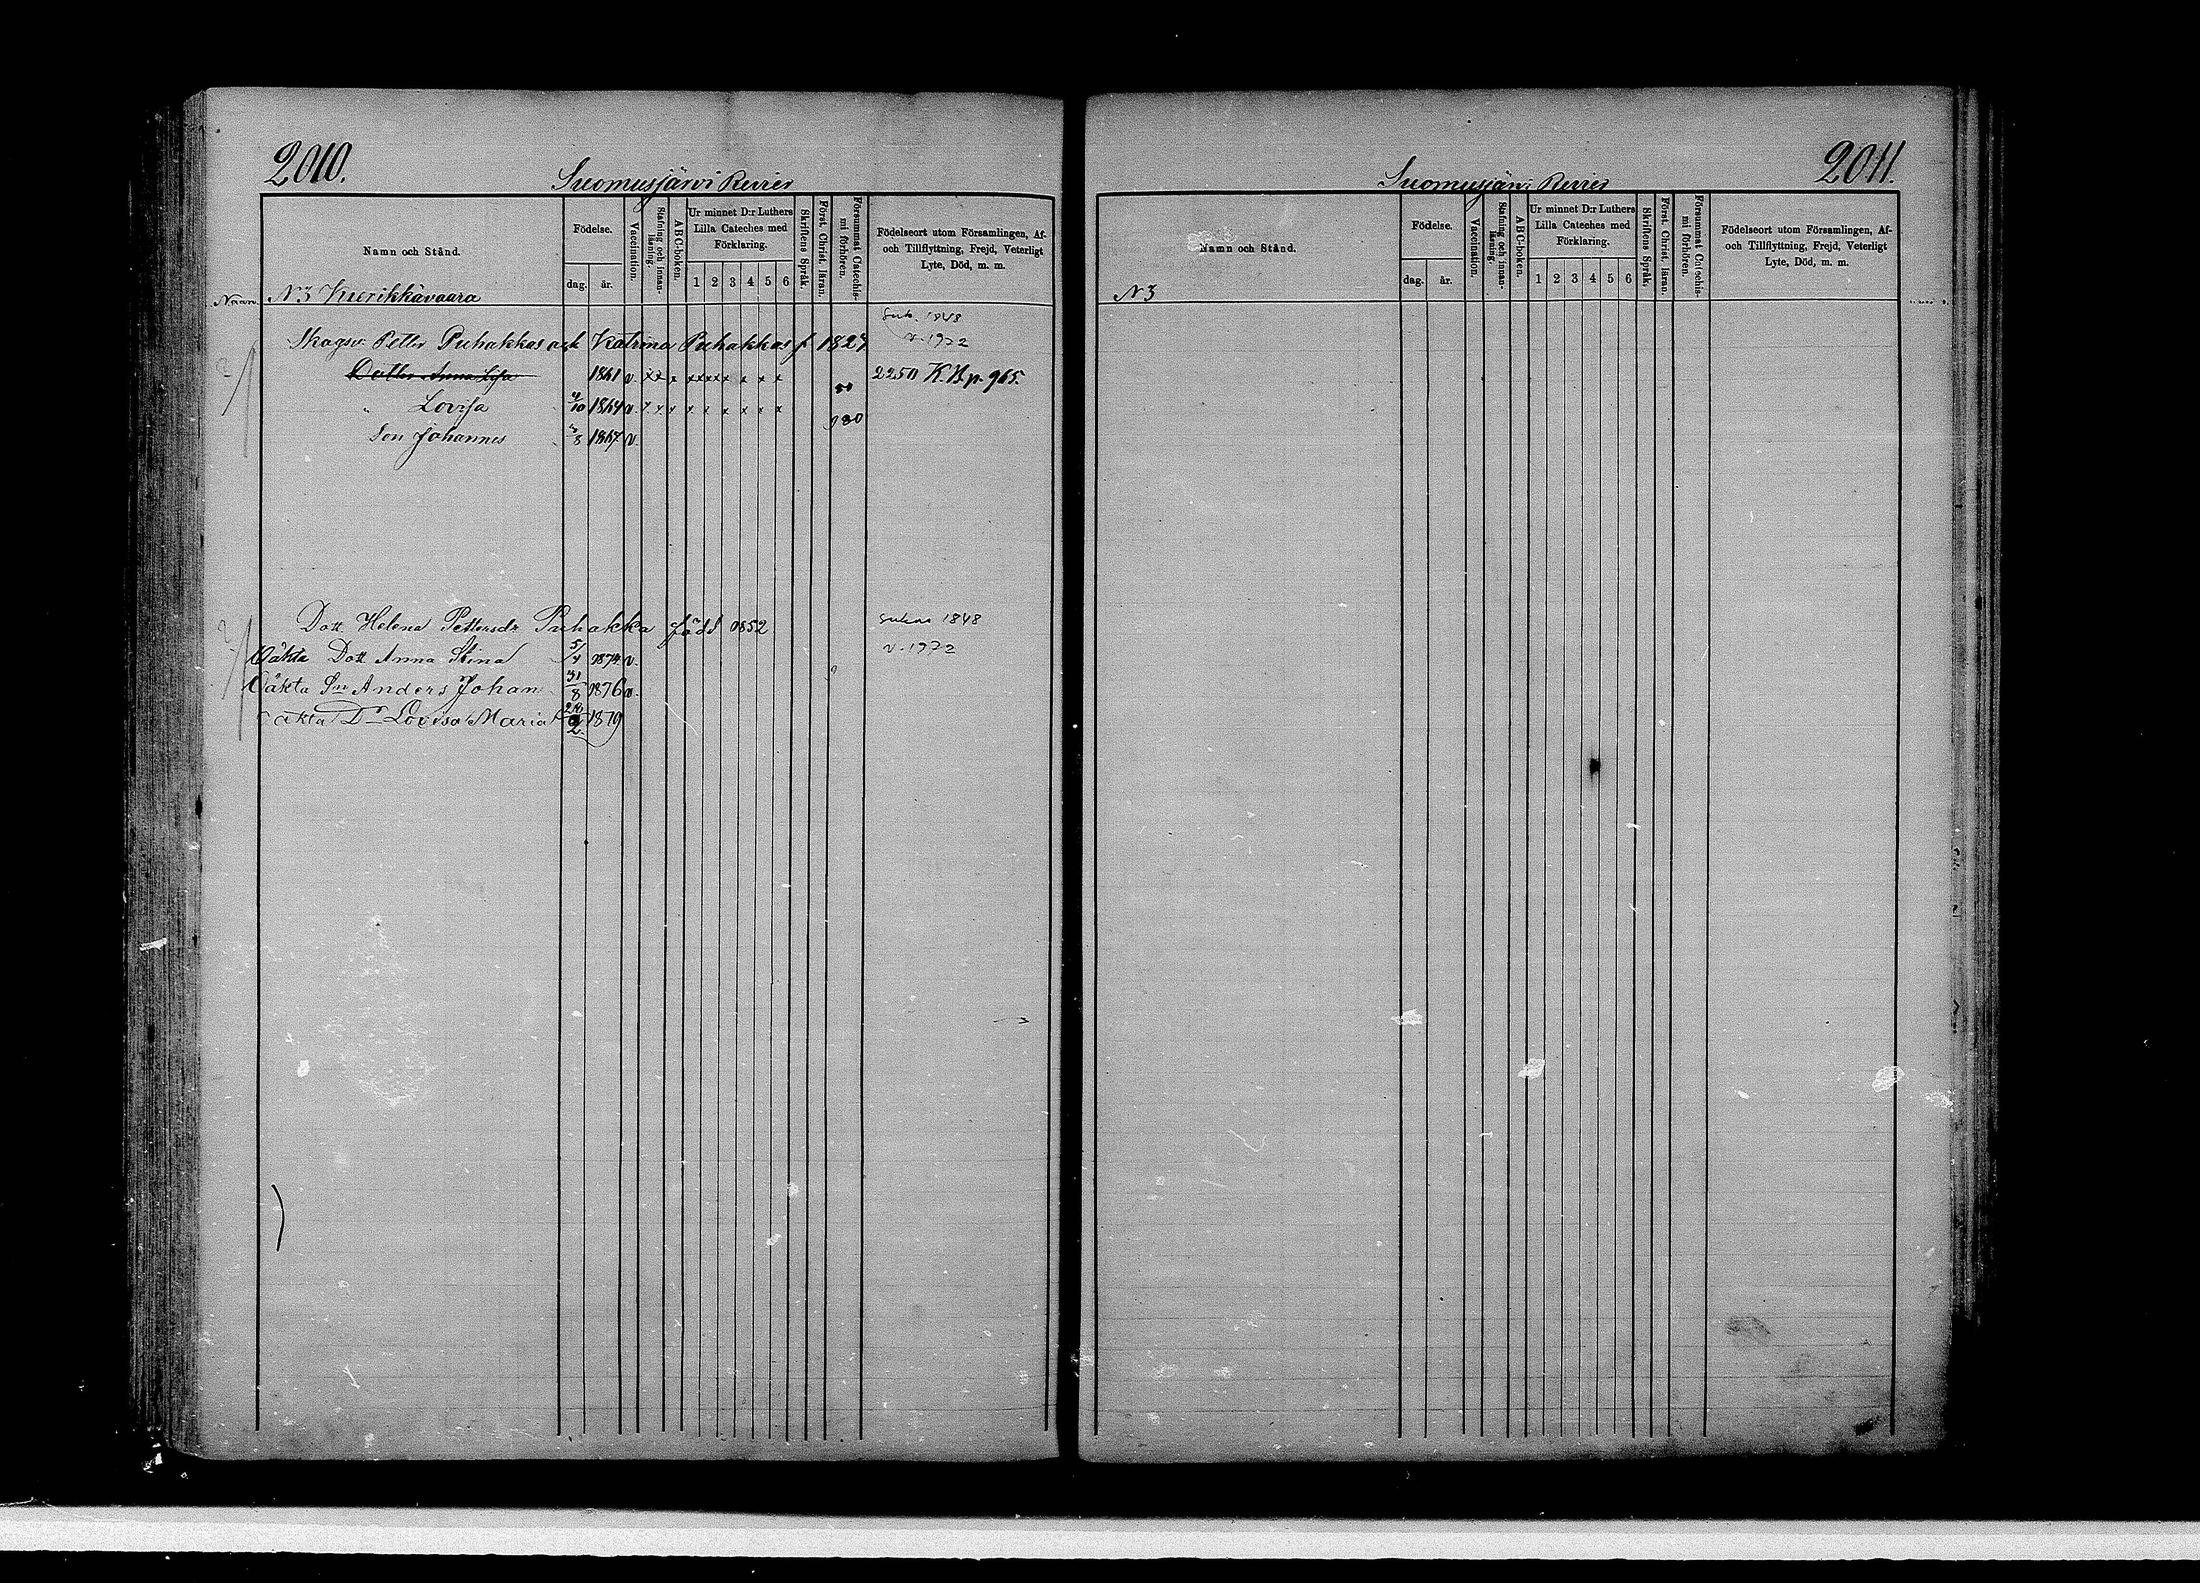 2010.
Suomusjärvi Revier
Namn och Stånd.
Födelse.
dag.
år.
Vaccination.
Stafning och innan-
läsning.
ABC-boken.
Ur minnet D:r Luthers
Lilla Cateches med
Förklaring.
1 2 3 4 5 6
Skriftens Språk.
Först. Christ. läran.
Försummat Catechis-
mi förhören.
Födelseort utom Församlingen, Af-
och Tillflyttning, Frejd, Veterligt
Lyte, Död, m. m.
N 3 Kuerikkävaara
1848
Skogsv. Petter Puhakkas och Katrina Puhakkas f 1827 v. 1972
Dotter Anna Lisa 1861 v x x x x x x x x x x 2250 K.B. p. 965.
" Lovisa 1864 v x x x x x x x x x
Son Johannes 1867 v.
Dott Helena Pettersdr Puhakka född 1852 1848
Oäkta Dott Anna Stina 5/4 1874 v. v. 1972
Oäkta Sn Anders Johan 31/8 1876 v.
oäkta Dr Lovisa Maria 1879
2011.
Suomusjärvi Revier
Namn och Stånd.
Födelse.
dag.
år.
Vaccination.
Stafning och innan-
läsning.
ABC-boken.
Ur minnet D:r Luthers
Lilla Cateches med
Förklaring.
1 2 3 4 5 6
Skriftens Språk.
Först. Christ. läran.
Försummat Catechis-
mi förhören.
Födelseort utom Församlingen, Af-
och Tillflyttning, Frejd, Veterligt
Lyte, Död, m. m.
N 3